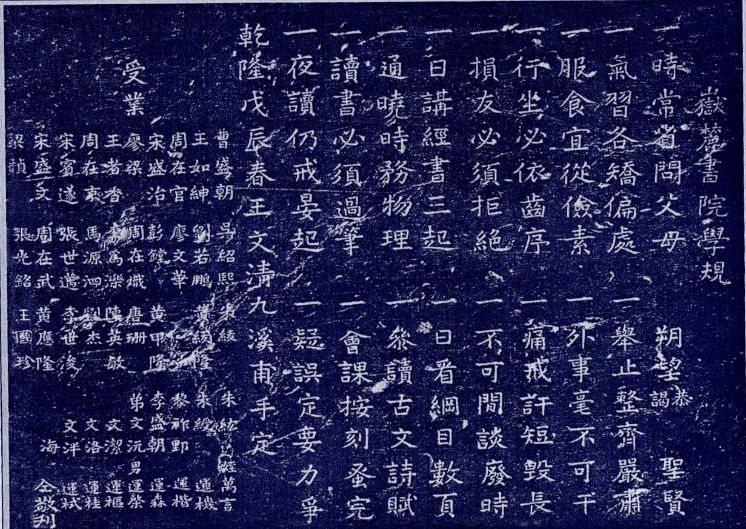 嶽麓書院學規
一時常省問父母 朔望恭謁 聖賢
一氣習各矯偏處 一舉止整齊嚴肅
一服食宜從儉素 一外事毫不可干
一行坐必依齒序 一痛戒訐短毀長
一損友必須拒絕 一不可閒談廢時
一日講經書三起 一日看綱目數頁
一通曉時務物理 一參讀古文詩賦
一讀書必須過筆 一會課按刻蚤完
一夜讀仍戒晏起 一疑誤定要力爭
乾隆戊辰春王文清九溪甫手定
受業
曹盛朝 吳紹熙 朱紱 朱紘 姪萬言
王如紳 劉若鵬 朱綬 運機
周在官 廖文華 黎祚野 運楷
宋盛治 彭鏜 黃甲隆 李盛朝 運森
廖梁 周在熾 唐珊 弟文沅 男運榮
王者香 為濼 陳英敏 文潔 運樞
周在京 馬源泗 劉杰 文洛 運柱
宋賓遂 張世 李世浚 文洋 運栻
宋盛文 周在武 黃應隆 海 仝敬刊
梁楨 張光銘 王國珍